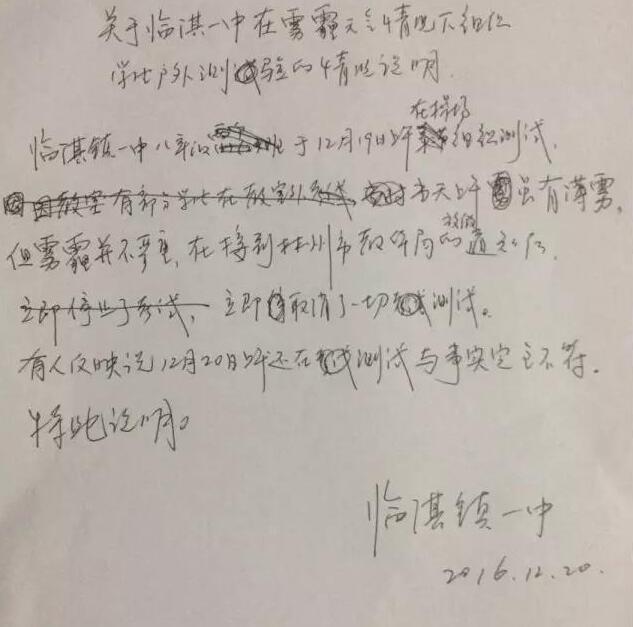 关于临淇一中在雾霾天气情况下组织
学生户外测试验的情况说明.
在操场
临淇镇一中八年级 于12月19日上午组织测试,
教室有部分学生在教室外考试 当天上午虽有薄雾,
但雾霾并不严重,在接到林州市教体局放假的通知后,
立即停止了考试,立即取消了一切测试。
有人反映说12月20日上午还在测试与事实完全不符.
特此说明。
临淇镇一中
2016.12.20.